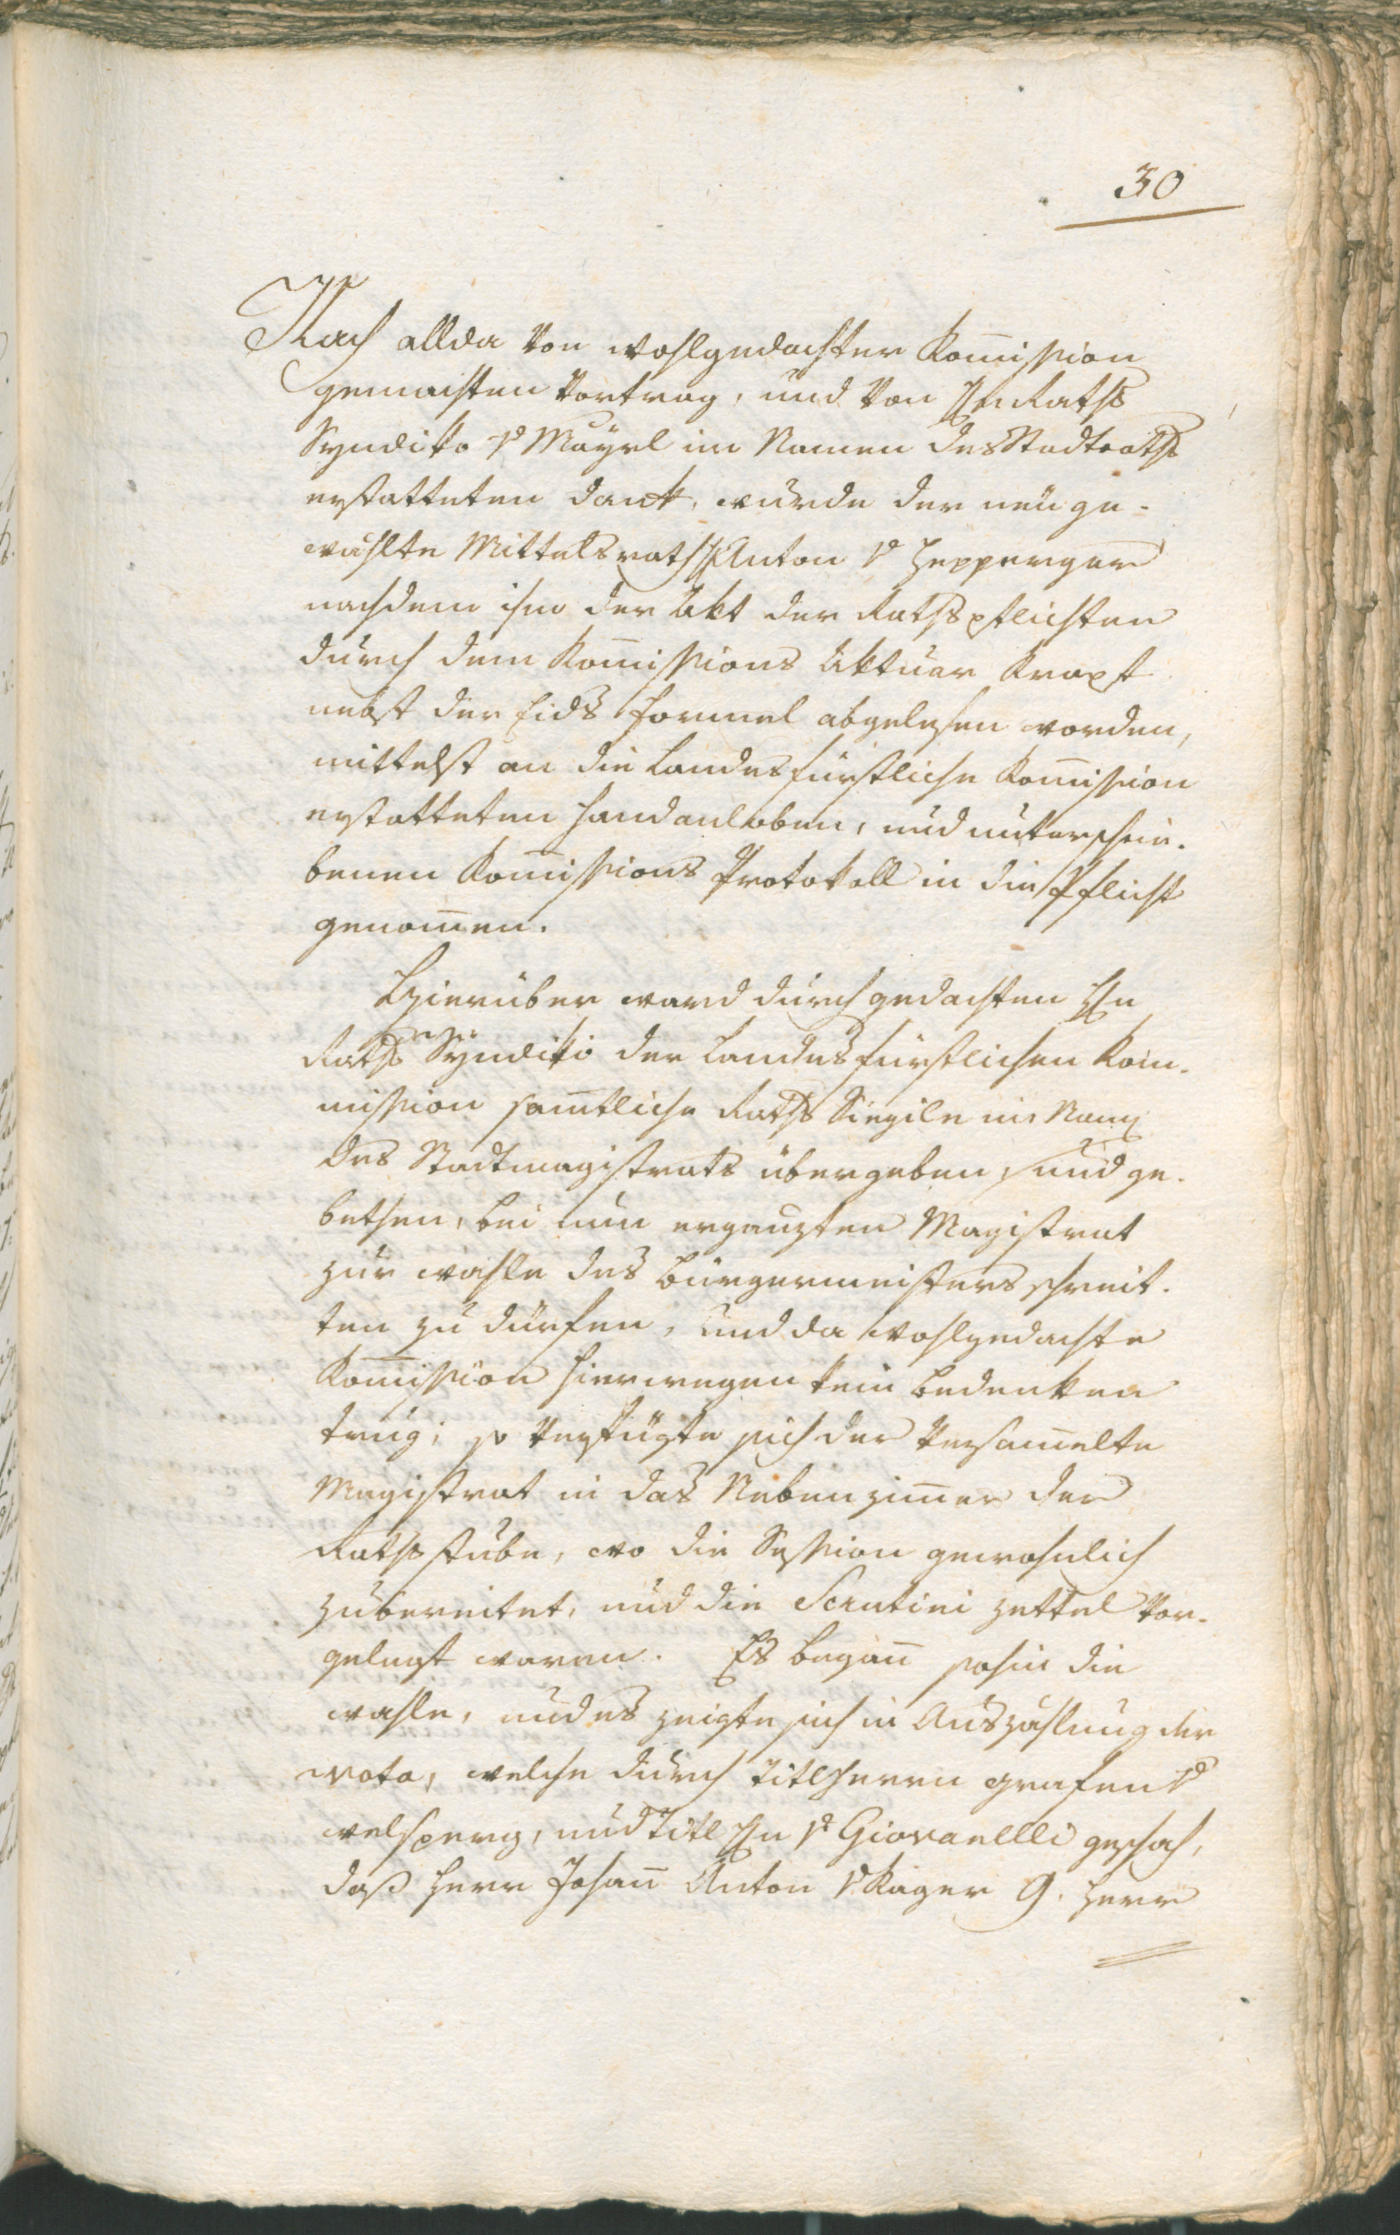 30
Nach allda von wohlgedachter Kom̄ission
gemachten Vortrag, und von Hn Raths
Syndiko v Mayrl im Namen des Stadtraths
erstatteten Dank, wurde der neu ge-
wählte Mittelsrath H Anton v Hepperger
nachdem ihm der Akt der Rathspflichten
durch dem Kom̄issions Aktuar Krapf
nebst der Eids Formel abgelesen worden,
mittelst an die Landesfürstliche Kom̄ission
erstatteten Handanloben, und unterschrie-
benen Kom̄issions Protokoll in die Pflicht
genom̄en.
Hierüber ward durch gedachten Hn
Raths Syndiko der Landesfürstlichen Kom-
mission sam̄tliche Raths Siegile im Namen
des Stadtmagistrats übergeben, und ge-
bethen, bei nun erganzten Magistrat
zur Wahle des Bürgermeisters schreit-
ten zu dürfen, und da wohlgedachte
Kom̄ission hierwegen kein Bedenken
trug; so verfügte sich der versam̄elte
Magistrat in das Nebenzim̄er der
Rathsstube, wo die Session gewohnlich
zubereitet, und die Scrutini zettel vor-
gelegt waren. Es began̄ sohin die
Wahle, und es zeigte sich in Auszahlung der
Vota, welche durch Titl Herrn Grafen v
Welsperg, und Titl Hn v Giovanelli geschah,
daß Herr Johan̄ Anton v Kager 9. Herr